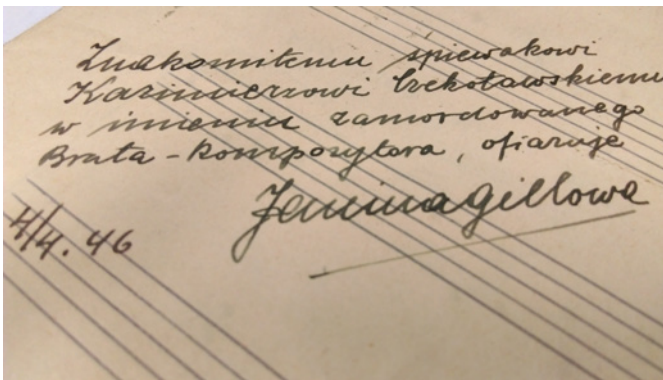 Znakomitemu śpiewakowi
Kazimierzowi Czekotowskiemu
w imieniu zamordowanego
Brata - kompozytora, ofiaruje
Janina Gillowa
4/4. 46